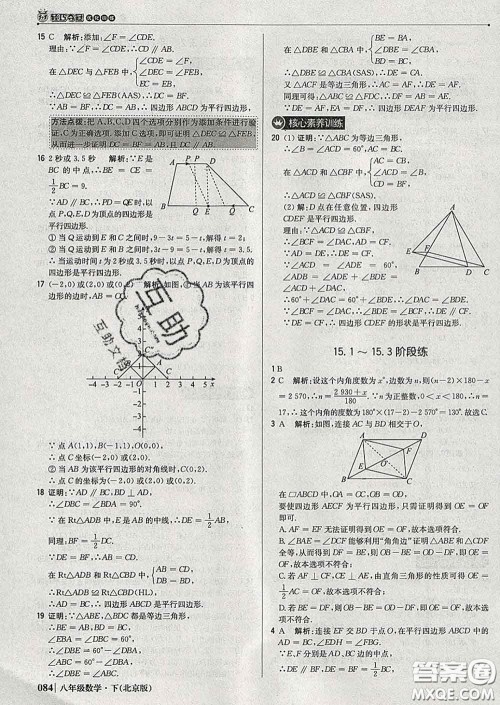 15 C 解析:添加:∠F=∠CDE.
理由:∵∠F=∠CDE,∴CD∥AB.
在△DEC与△FEB中,
∠DCE=∠EBF,
CE=BE,
∠CED=∠BEF,
∴△DEC≌△FEB,∴DC=BF.
∵AB=BF,∴DC=AB.∴四边形ABCD为平行四边形.
方法点拨:把A,B,C,D四个选项分别作为添加条件进行验
证,C为正确选项.添加C选项,即可证明△DEC≌△FEB,
从而进一步证明DC=BF=AB,且DC∥AB.
16 2秒或3.5秒 解析:∵E是
BC的中点,∴BE=CE=
1/2 BC=9.
∵AD∥BC,∴PD=QE时,以
点P,Q,E,D为顶点的四边形是
平行四边形.
① 当Q运动到E和C之间时,9-3t=5-t,解得t=2;
② 当Q运动到E和B之间时,3t-9=5-t,解得t=3.5.
∴当运动时间为2秒或3.5秒时,以点P,Q,E,D为顶点的
四边形是平行四边形.
17 (-2,0)或(2,0)或(0,2) 解析:如图,①当AB为该平
行四边形的边时,AB=OC.
∵点A(1,1),B(-1,1),O(0,0),
∴点C坐标(-2,0)或(2,0).
②当AB为该平行四边形的对角线时,C(0,2).
∴点C的坐标为(-2,0)或(2,0)或(0,2).
18 证明:∵AD∥BC,∴∠ADB=∠DBC=90°.
∵在Rt△ADB中,E是AB的中点,∴DE=1/2 AB.
同理:BF=1/2 DC.
∵DE=BF,∴AB=CD.
在Rt△ADB与Rt△CBD中,
AB=CD,
BD=DB,
∴Rt△ADB≌Rt△CBD(HL),
∴AD=BC,∴四边形ABCD是平行四边形.
19 证明:∵△ABE,△BCF,△ADC都是等边三角形,
∴BE=AB,BF=CB,
∠EBA=∠FBC=60°,
∴∠EBF=∠ABC=60°-∠ABF.
在△EFB和△ACB中,
EB=AB,
∠EBF=∠ABC,
BF=BC,
∴△EFB≌△ACB(SAS),∴EF=AC=AD.
同理可得:△ABC≌△DFC,∴DF=AB=AE.
∴四边形AEFD是平行四边形.
核心素养训练
20 (1) 证明:∵△ABC为等边三角形,
∴AC=CB,∠ACD=∠CBF=60°.
又CD=BF,
∴△ACD≌△CBF(SAS).
(2) 解:D点在任意位置,四边形
CDEF都是平行四边形.证明如下:
∵△ACD≌△CBF,
∴∠BCF=∠DAC,CF=AD.
∵AD=DE,∴CF=DE.
∵∠ACD=∠ADE,∠ACD+
∠BDE=∠ADE+∠BDE=
∠ADB=∠ACD+∠DAC,
∴60°+∠BDE=60°+∠DAC,
∴∠BDE=∠DAC=∠BCF,∴DE∥CF.
∵DE=CF,∴四边形CDEF都是平行四边形.
15.1～15.3阶段练
1 B
2 C 解析:设这个内角度数为x°,边数为n,则(n-2)×180-x
=2570,∴n=(2930+x)/180.∵n为正整数,0<x<180,∴n=
17,∴这个内角的度数为180°×(17-2)-2570°=130°.故选C.
3 A 解析:如图,连接AC与BD相交于O.
在▱ABCD中,OA=OC,OB=OD,
要使四边形AECF为平行四边形,只需证明得到
OE=OF即可.
A. AF=EF无法证明得到OE=OF,故本选项符合;
B. ∠BAE=∠DCF能够利用“角角边”证明△ABE和
△CDF全等,从而得到DF=BE,∴OE=OF,故本选项
不符合;
C. 若AF⊥CF,CE⊥AE,由直角三角形的性质可得
OE=1/2 AC=OF,故本选项不符合;
D. 若BE=DF,则OB-BE=OD-DF,即OE=OF,故
本选项不符合.故选A.
4 A 解析:在△DEF中,DE=EF-
084 八年级数学·下(北京版)
互助
互助文档
答案圈
MXQE.COM